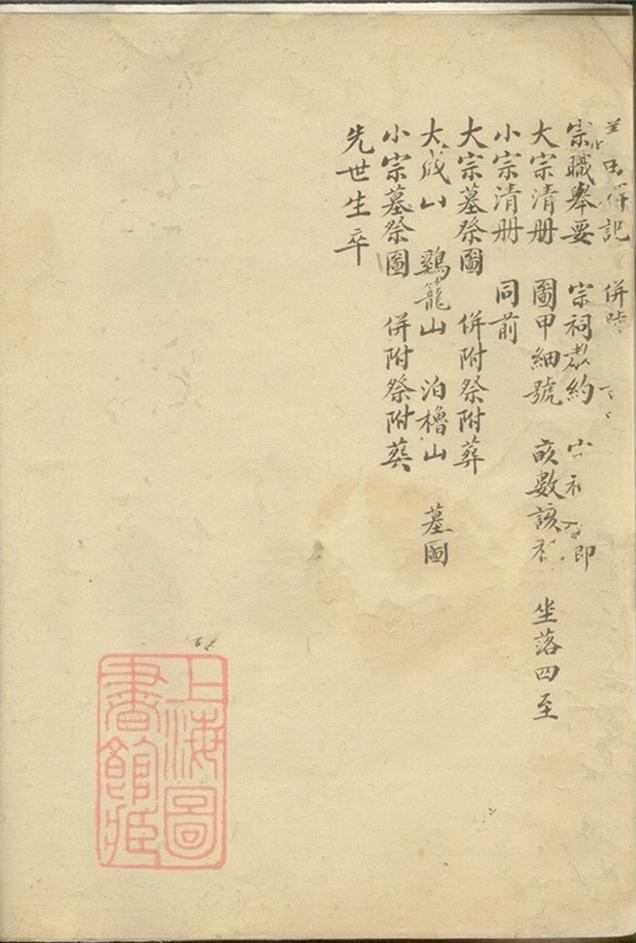 田併記 併
宗職舉要 宗祠農約 即
大宗清册 圖甲細號 畝數該 坐落四至
小宗清册 同前
大宗墓祭圖 併附祭附葬
大成山 鷄籠山 泊櫓山 墓圖
小宗墓祭圖 併附祭附葬
先世生卒
上海圖
書館藏